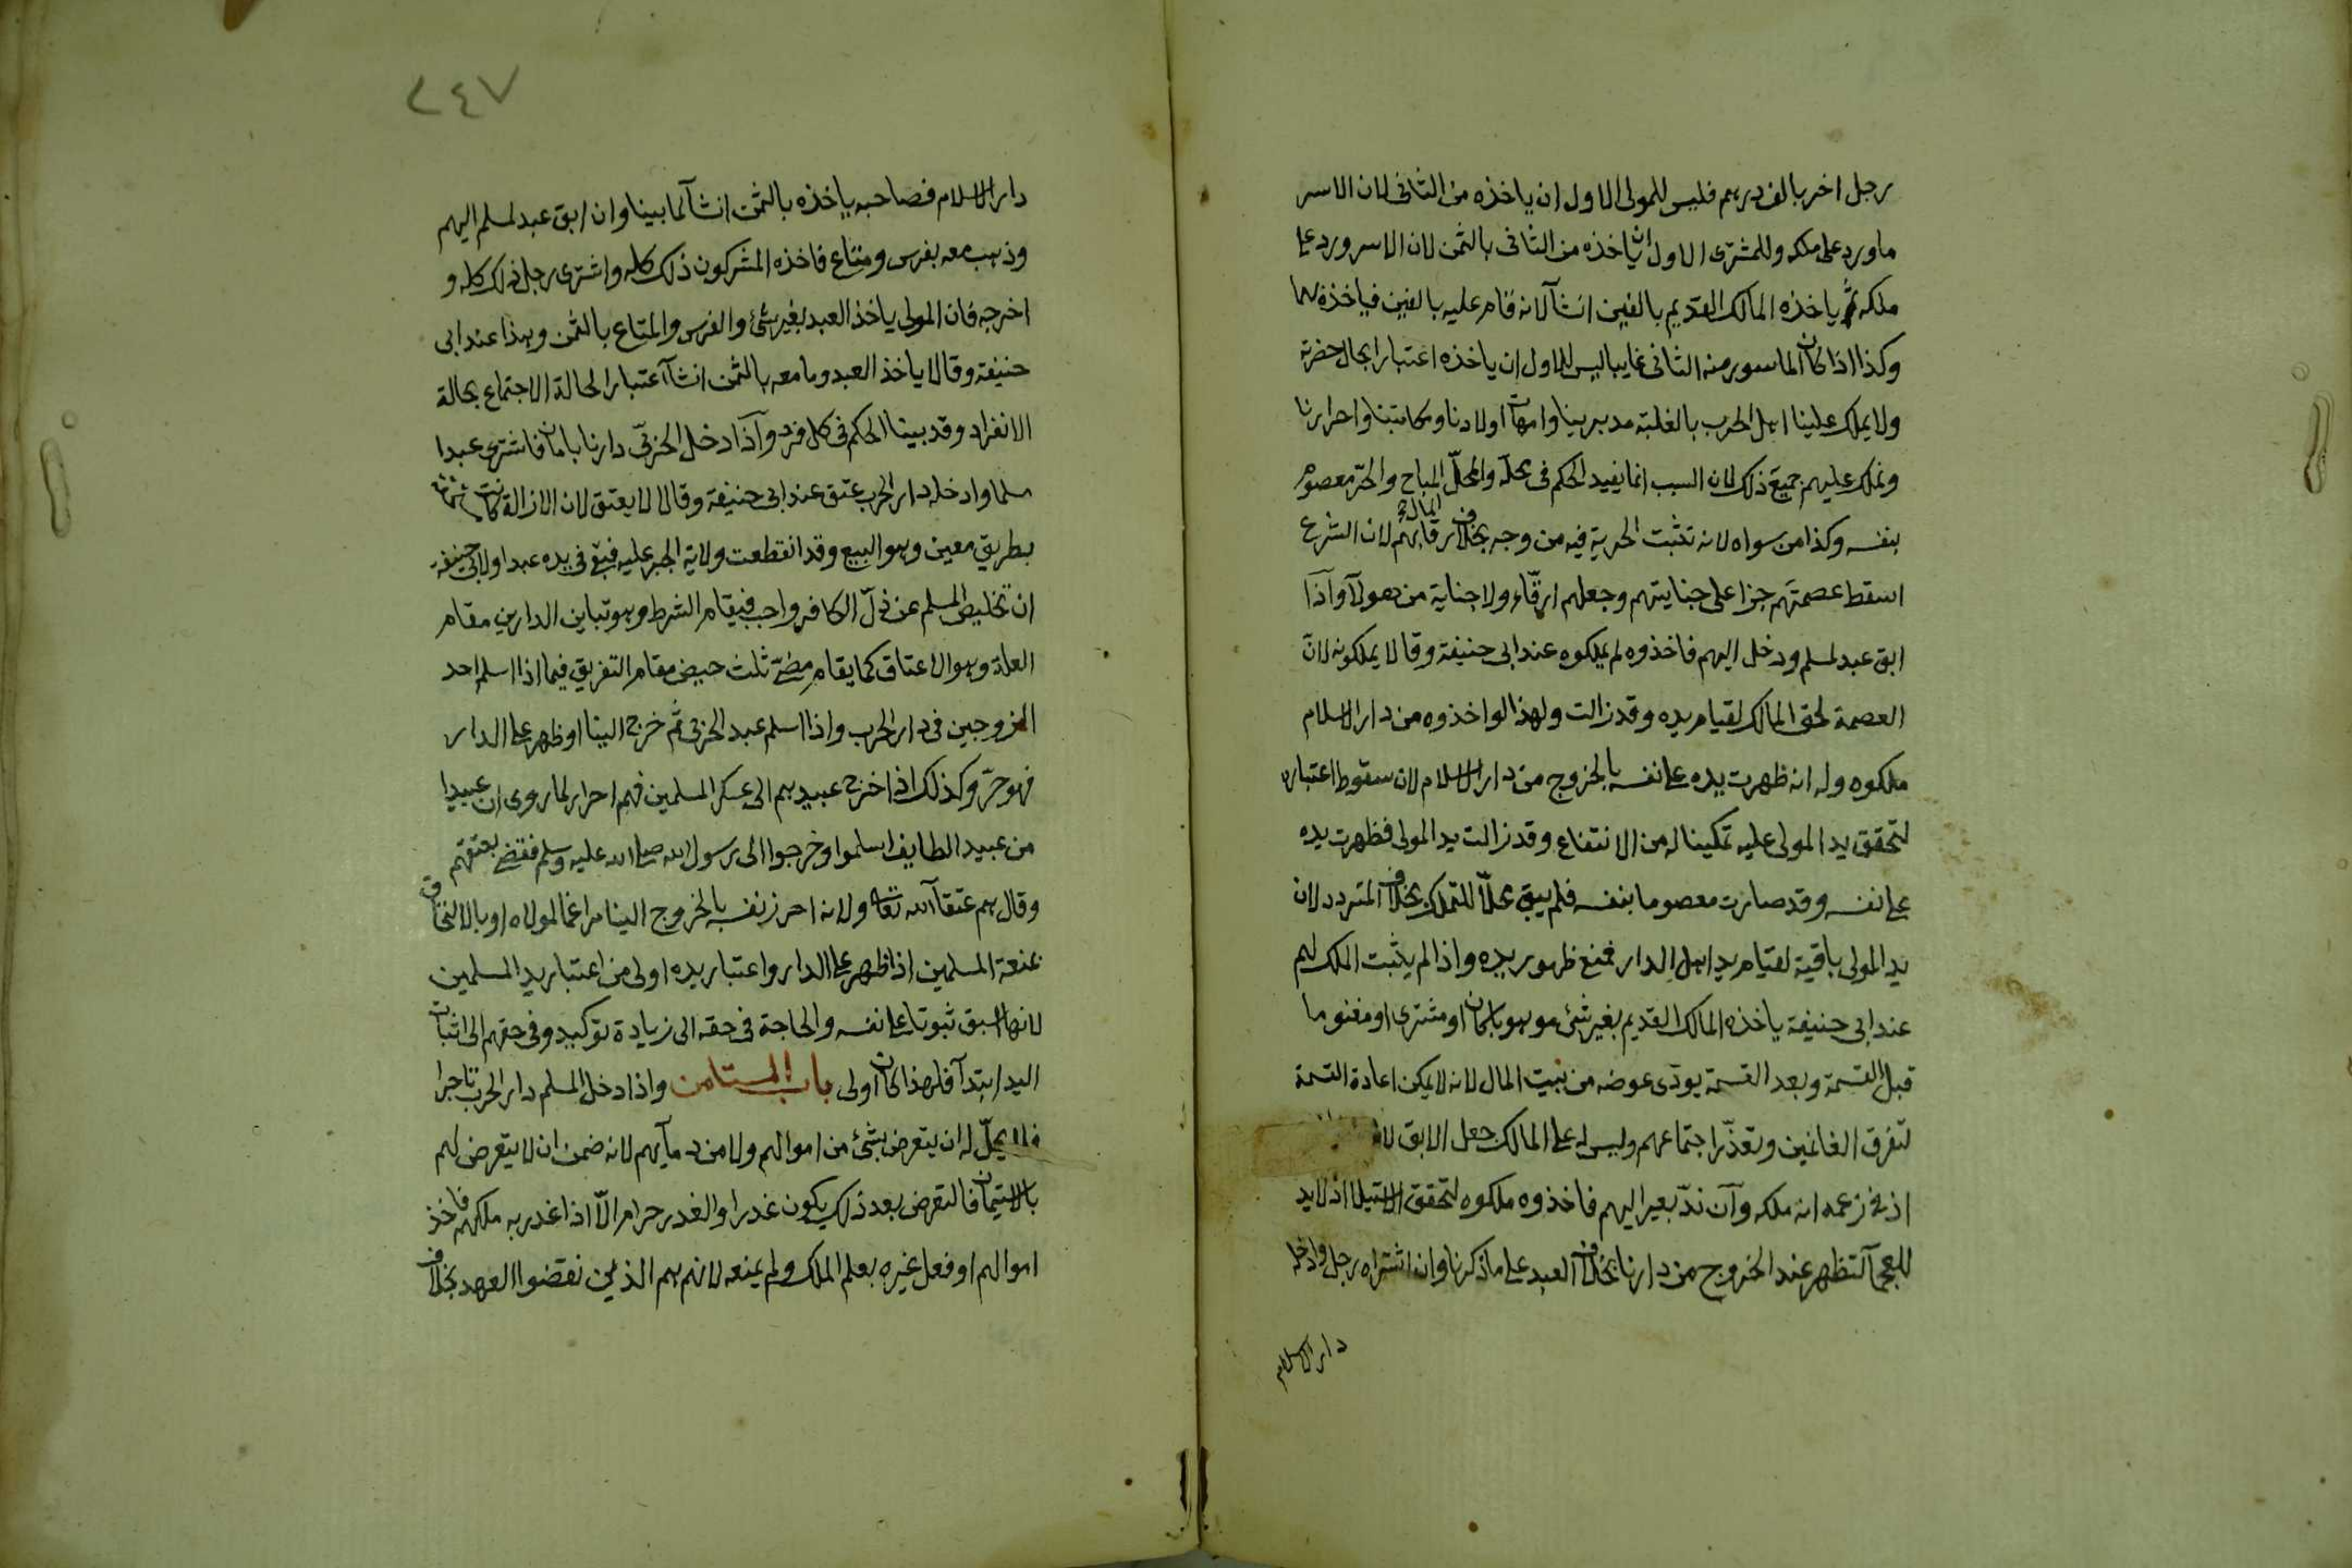 رجل اخر بالف درهم فليس للمولى الاول ان ياخذه من الثانى لان الاسر
ما ورد على ملكه وللمشترى الاول ان ياخذه من الثانى بالثمن لان الاسر ورد على
ملكه ثم ياخذه المالك القديم بالفين ان شآ لانه قام عليه بالفين فياخذه بهما
وكذا اذا كان الماسور منه الثانى غايبا ليس للاول ان ياخذه اعتبارا بحال حضرته
ولا يملك علينا اهل الحرب بالغلبة مدبرينا وامهات اولادنا ومكاتبنا واحرارنا
ونملك عليهم جميع ذلك لان السبب انما يفيد الحكم فى محله والمحلّ المال المباح والحرّ معصوم
بنفسه وكذا من سواه لانه تثبت الحرية فيه من وجه بخلاف رقابهم لان الشرع
اسقط عصمتهم جزا على جنايتهم وجعلهم ارقّاء ولا جناية من هولآ وآذا
ابق عبد لمسلم ودخل اليهم فاخذوه لم يملكوه عند ابى حنيفة وقالا يملكونه لان
العصمة لحق المالك لقيام يده وقد زالت ولهذا لو اخذوه من دار الاسلام
ملكوه وله انه ظهرت يده على نفسه بالخروج من دار الاسلام لان سقوط اعتباره
لتحقق يد المولى عليه تمكينا له من الانتفاع وقد زالت يد المولى فظهرت يده
على نفسه وقد صارت معصوما بنفسه فلم يبق محلّا للتملك بخلاف المتردد لان
يد المولى باقية لقيام يد اهل الدار فمنع ظهور يده واذا لم يثبت الملك لهم
عند ابى حنيفة ياخذه المالك القديم بغير شئ موهوبا كان او مشترى او مغنوما
قبل القسمة وبعد القسمة يودى عوضه من بيت المال لانه لا يمكن اعادة القسمة
لتفرق الغانمين وتعذّر اجتماعهم وليس له على المالك جعل الابق لانه
اذ فى زعمه انه ملكه وآن ندّ بعير اليهم فاخذوه ملكوه لتحقق الاستيلا اذ لا يد
للعجمآ لتظهر عند الخروج من دارنا بخلاف العبد على ما ذكرنا وان اشتراه رجل وادخله
دار الاسلام
٢٤٧
دار الاسلام فصاحبه ياخذه بالثمن ان شآ لما بينا وان ابق عبد لمسلم اليهم
وذهب معه بفرس ومتاع فاخذه المشركون ذلك كله واشترى رجل ذلك كله و
اخرجه فان المولى ياخذ العبد بغير شئ والفرس والمتاع بالثمن وهذا عند ابى
حنيفة وقالا ياخذ العبد وما معه بالثمن ان شآ اعتبارا لحالة الاجتماع بحالة
الانفراد وقد بينا الحكم فى كل فرد وآذا دخل الحربىّ دارنا بامان فاشترى عبدا
مسلما وادخله دار الحرب عتق عند ابى حنيفة وقالا لا يعتق لان الازالة كانت
بطريق معين وهو البيع وقد انقطعت ولاية الجبر عليه فبقى فى يده عبدا ولابى حنيفة
ان تخليص المسلم عن ذلّ الكافر واجب فيقام الشرط وهو تباين الدارين مقام
العلة وهو الاعتاق كما يقام مضىّ ثلث حيض مقام التفريق فيما اذا اسلم احد
الزوجين فى دار الحرب واذا اسلم عبد الحربى ثم خرج الينا او ظهر على الدار
فهو حرّ وكذلك اذا خرج عبيدهم الى عسكر المسلمين فهم احرار لما روى ان عبيدا
من عبيد الطايف اسلموا وخرجوا الى رسول الله صلى الله عليه وسلم فقضى بعتقهم
وقال هم عتقآ الله تعالى ولانه احرز نفسه بالخروج الينا مراغما لمولاه او بالالتحاق
بمنعة المسلمين اذا ظهر على الدار واعتبار يده اولى من اعتبار يد المسلمين
لانها اسبق ثبوتا على نفسه والحاجة فى حقه الى زيادة توكيد وفى حقهم الى اثبات
اليد ابتدآ فلهذا كان اولى باب المستامن واذا دخل المسلم دار الحرب تاجرا
فلا يحلّ له ان يتعرض بشئ من اموالهم ولا من دمآيهم لانه ضمن ان لا يتعرض لهم
بالاستيمان فالتعرض بعد ذلك يكون غدرا والغدر حرام الّا اذا غدر به ملكهم فاخذ
اموالهم او فعل غيره بعلم الملك ولم يمنعه لانهم هم الذين نقضوا العهد بخلاف